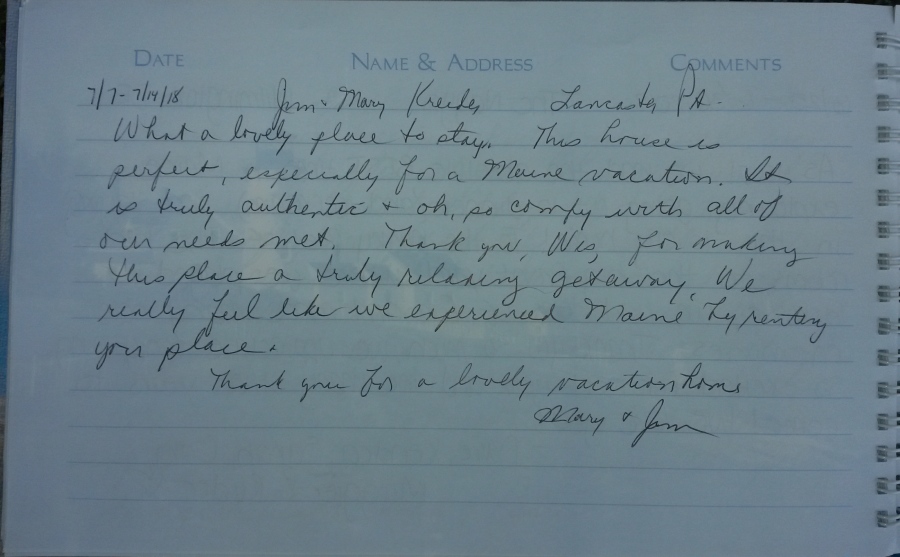 DATE NAME & ADDRESS COMMENTS
7/7 - 7/14/18 Jim & Mary Kreider Lancaster PA.
What a lovely place to stay. This house is
perfect, especially for a Maine vacation. It
is truly authentic & oh, so comfy with all of
our needs met. Thank you, Wes, for making
this place a truly relaxing getaway. We
really feel like we experienced Maine by renting
your place.
Thank you for a lovely vacation home
Mary & Jim